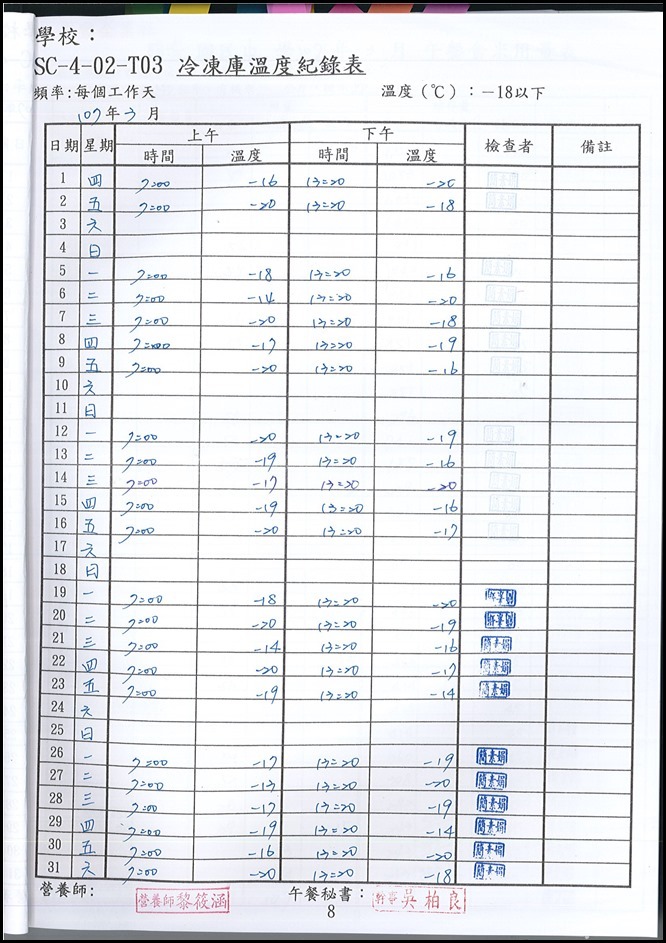 學校：
SC-4-02-T03 冷凍庫溫度紀錄表
頻率:每個工作天 溫度(℃)：－18以下
107年3月
日期 星期 上午 下午 檢查者 備註
時間 溫度 時間 溫度
1 四 7:00 -16 13:20 -20
2 五 7:00 -20 13:20 -18
3 六
4 日
5 一 7:00 -18 13:20 -16
6 二 7:00 -14 13:20 -20
7 三 7:00 -20 13:20 -18
8 四 7:00 -17 13:20 -19
9 五 7:00 -20 13:20 -16
10 六
11 日
12 一 7:00 -20 13:20 -19
13 二 7:00 -19 13:20 -16
14 三 7:00 -17 13:20 -20
15 四 7:00 -19 13:20 -16
16 五 7:00 -20 13:20 -17
17 六
18 日
19 一 7:00 -18 13:20 -20
20 二 7:00 -20 13:20 -19
21 三 7:00 -14 13:20 -16 簡素娟
22 四 7:00 -20 13:20 -17 簡素娟
23 五 7:00 -19 13:20 -14 簡素娟
24 六
25 日
26 一 7:00 -17 13:20 -19 簡素娟
27 二 7:00 -13 13:20 -20 簡素娟
28 三 7:00 -17 13:20 -19 簡素娟
29 四 7:00 -19 13:20 -14 簡素娟
30 五 7:00 -16 13:20 -20 簡素娟
31 六 7:00 -20 13:20 -18 簡素娟
營養師: 營養師黎筱涵 午餐秘書： 幹事吳柏良
8